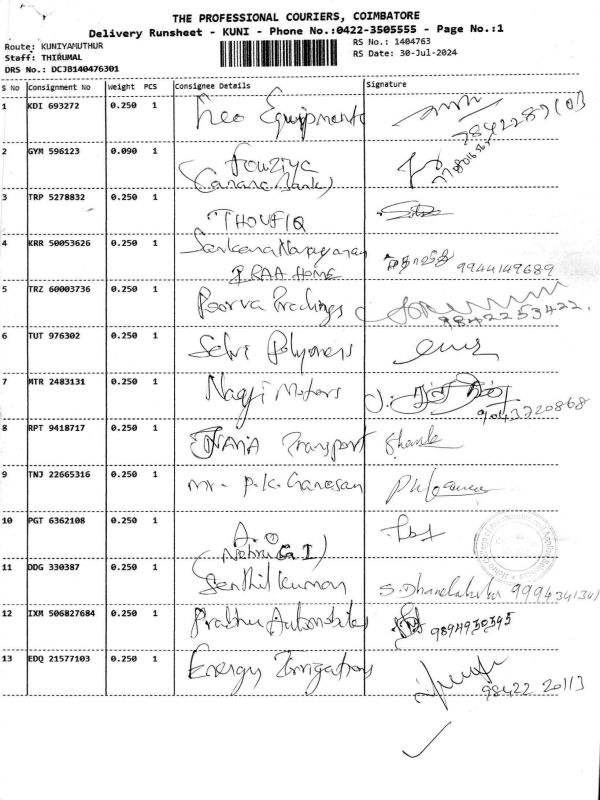 THE PROFESSIONAL COURIERS, COIMBATORE
Delivery Runsheet - KUNI - Phone No.:0422-3505555 - Page No.:1
Route: KUNIYAMUTHUR
RS No.: 1404763
Staff: THIRUMAL
RS Date: 30-Jul-2024
DRS No.: DCJB140476301
S No Consignment No Weight PCS Consignee Details Signature
1 KDI 693272 0.250 1 Neo Equipments
2 GYM 596123 0.090 1 Fouziya
(Canara Bank)
3 TRP 5278832 0.250 1 THOUFIQ
4 KRR 50053626 0.250 1 Sankara Narayanan 9944149689
PRAA HOME
5 TRZ 60003736 0.250 1 Poorva Tradings 9842253422
6 TUT 976302 0.250 1 Selvi Polymers
7 MTR 2483131 0.250 1 Nagji Motors 9043720868
8 RPT 9418717 0.250 1 Transport
9 TNJ 22665316 0.250 1 mr. P.K. Ganesan
10 PGT 6362108 0.250 1 A.O
(Nehru G I)
11 DDG 330387 0.250 1 Senthil kumar
12 IXM 506827684 0.250 1 Prabhu Automobiles 9894930395
13 EDQ 21577103 0.250 1 Energy Irrigations 98422 20113